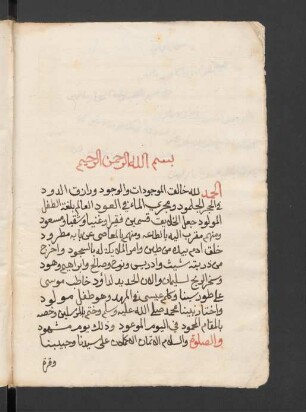 بسم الله الرحمن الرحيم
الحمد لله خالق الموجودات والوجود ورازق الدود
في الحجر الجلمود ومجري الماء في العود العالم بلغة الطفل
المولود جعل الخلايق قسمين فقير وغني وشقي ومسعود
ومنهم مقرب اليه بالطاعه ومنهم بالمعاصي عن بابه مطرود
خلق ادم بيده من طين وامر الملايكة له بالسجود واخرج
من دريته شيث وادريس ونوح وصالح وابراهيم وهود
وسخر الريح لسليمان والان الحديد لداود خاطب موسى
على طور سينا وكلم عيسى في المهد وهو طفل مولود
واختار نبينا محمد صلى الله عليه وسلم وختم به المرسلين وخصه
بالمقام المحمود في اليوم الموعود وذلك يوم مشهود
والصلوة والسلام الاتمان الاكملان على سيدنا وحبيبنا
وقرة